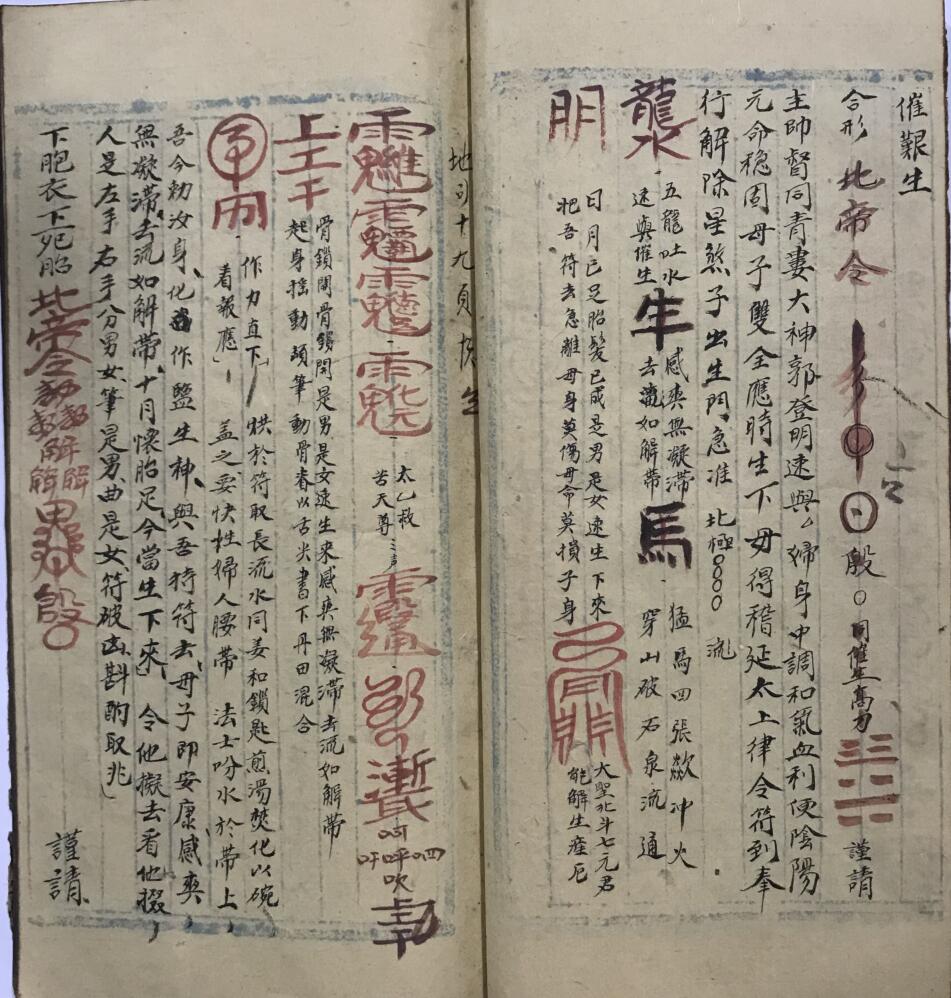 催艱生
合形 北帝令 日 殷 ○ 同催生高力 謹請
主帥督同青妻大神郭登明速與厶婦身中調和氣血利便陰陽
元命稳固母子雙全應時生下毋得稽延太上律令符到奉
行解除星煞子出生門急准 北極○○○ 流
龍水 五龍吐水 速與催生 牛 感爽無凝滞 去流如解帶 馬 猛馬四張 冲火 穿山破石泉流通
明 日月已足胎髮已成是男是女速生下來 把吾符去急離母身莫傷母命莫損子身 大聖北斗七元君 能解生產厄
地司十九頁
太乙救苦天尊 三声 呵呼吹四吁
上工干 骨鎖開骨鎖開是男是女速生來感爽無凝滞去流如解帶 起身摇動頡筆動骨脊以舌尖書下丹田混合
作力直下 看報應 烘於符取長流水同姜和鎖匙煎湯焚化以碗 盖之妥快性婦人腰帶 法士吩水於帶上
吾今勅汝身化作監生神與吾持符去母子即安康感爽
無凝滞去流如解帶十月懷胎足今當生下來 令他擬去看他掇
人是左手右手分男女筆是男曲是女符破凶斟酌取兆
下胞衣下死胎 北帝令 殷 ○ 謹請